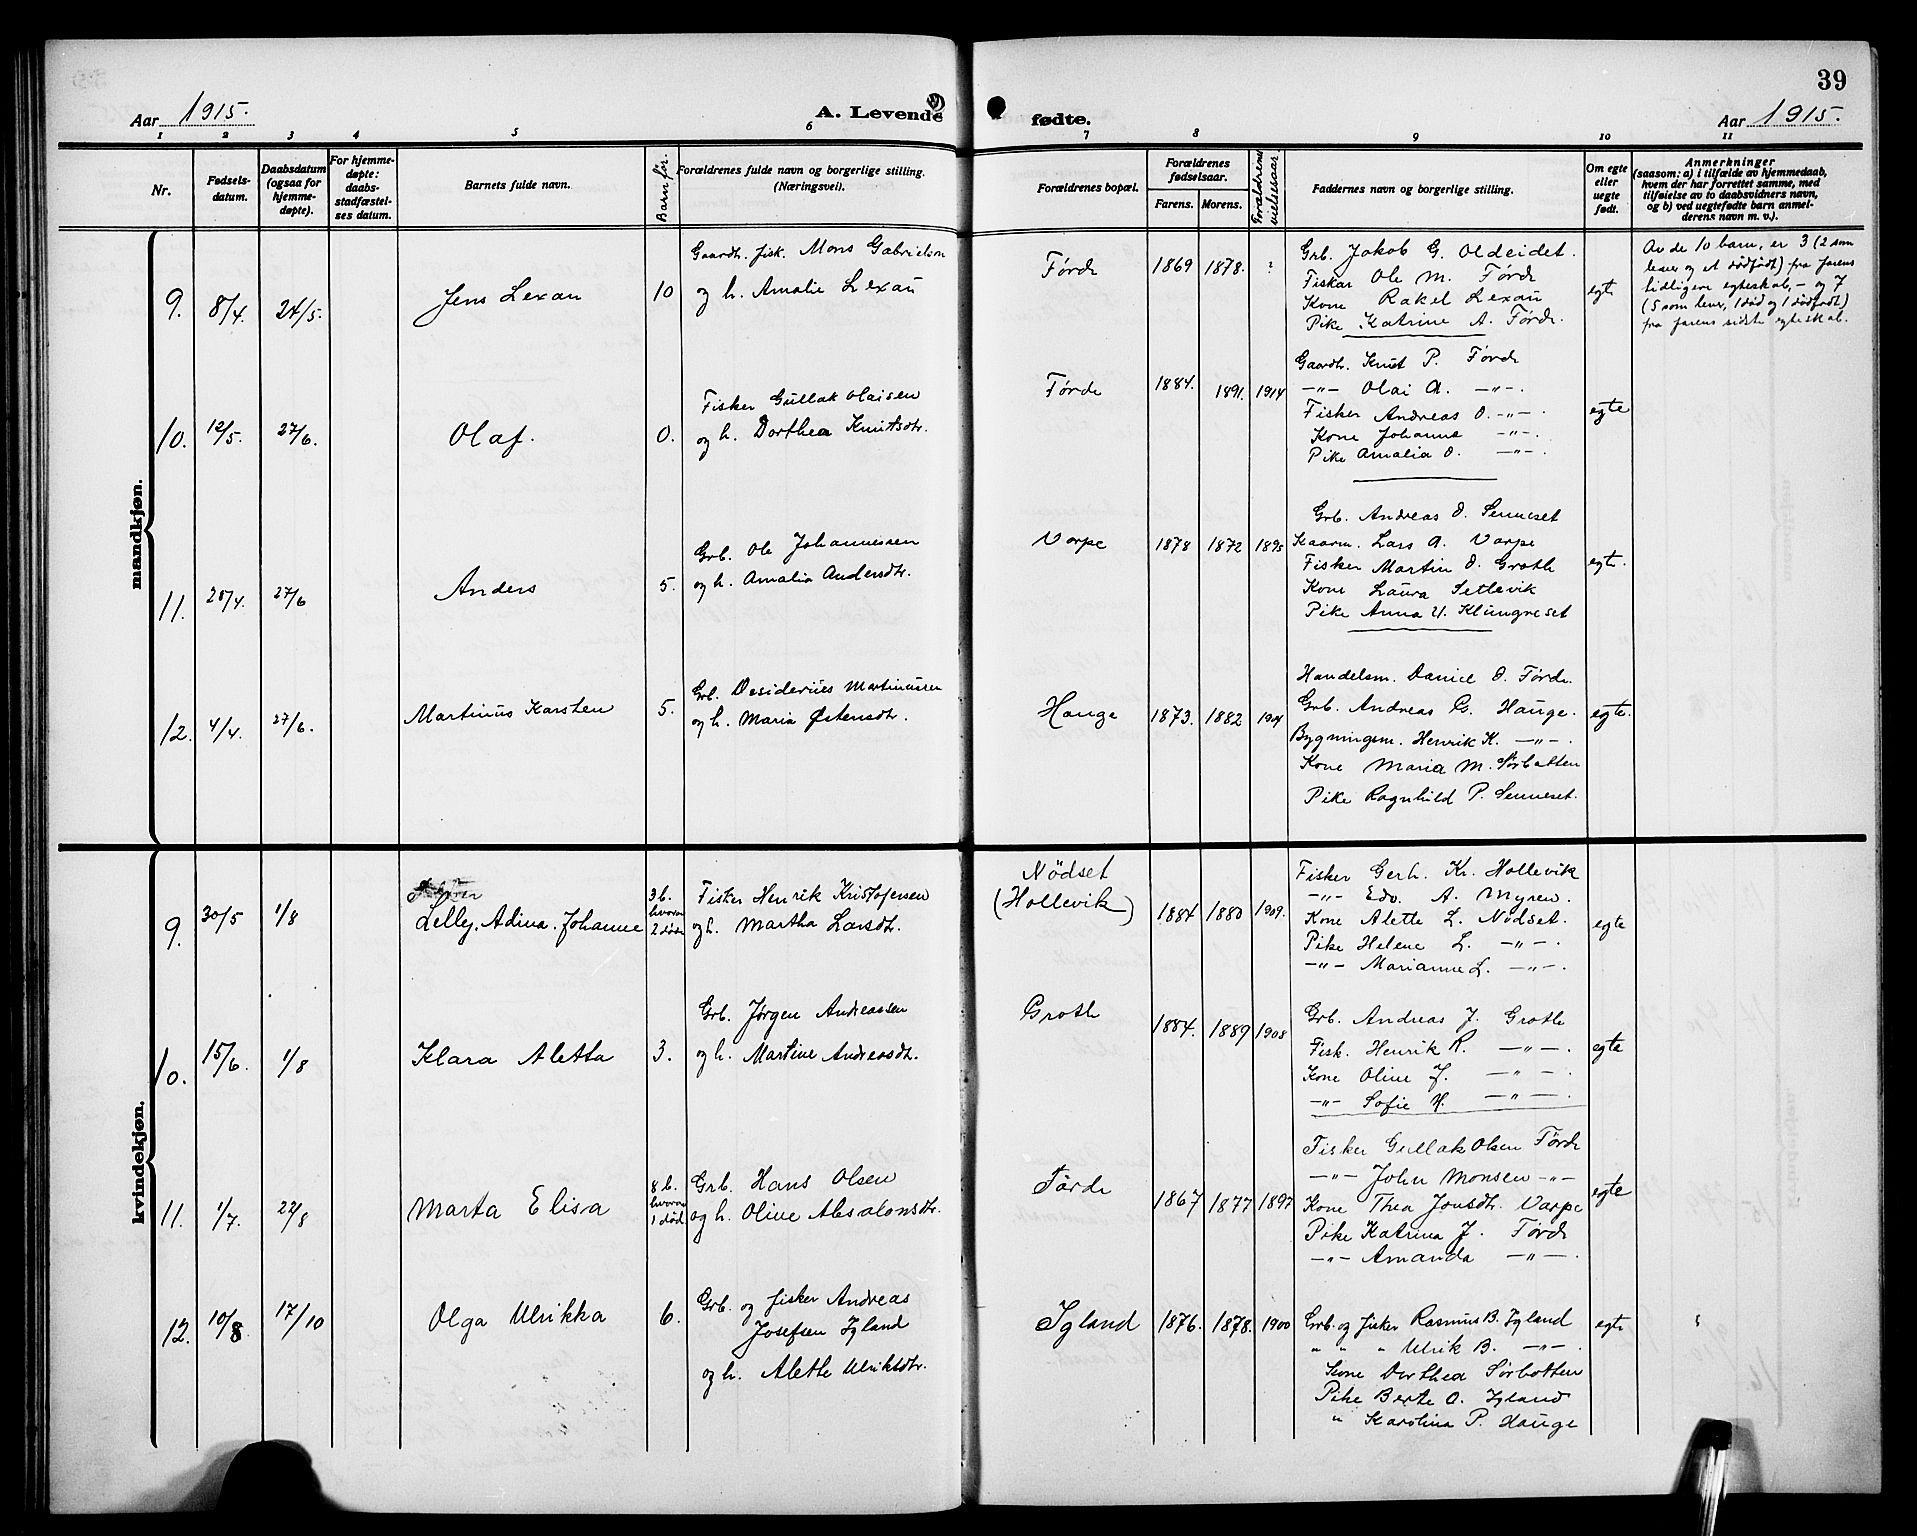 39
Aar 1915.
A. Levende
fødte.
Aar 1915.
1 2 3 4 5 6 7 8 9 10 11
Nr.
Fødsels-
datum.
Daabsdatum
(ogsaa for
hjemme-
døpte).
For hjemme-
døpte:
daabs-
stadfæstel-
ses datum.
Barnets fulde navn.
Barnfør.
Forældrenes fulde navn og borgerlige stilling.
(Næringsvei).
Forældrenes bopæl.
Forældrenes
fødselsaar.
Farens. Morens.
Forældrenes
vielsesaar.
Faddernes navn og borgerlige stilling.
Om egte
eller
uegte
født.
Anmerkninger
(saasom: a) i tilfælde av hjemmedaab,
hvem der har forrettet samme, med
tilføielse av to daabsvidners navn,
og b) ved uegtefødte barn anmel-
derens navn m. v.).
mandkjøn.
9. 8/4. 24/5. Jens Lexau 10
Gaardb. fisk. Mons Gabrielsen
og h. Amalie Lexau
Førde 1869 1878. ?
Grb. Jakob G. Oldeidet.
Fisker Ole M. Førde
Kone Rakel Lexau
Pike Katrine A. Førde.
egte
Av de 10 barn, er 3 (2 som
lever og et dødfødt) fra farens
tidligere egteskab, - og 7
(5 som lever, 1 død og 1 dødfødt)
fra farens sidste egteskab.
10. 12/5. 27/6. Olaf. 0.
Fisker Gullak Olaisen
og h. Dorthea Knutsdtr.
Førde 1884. 1891. 1914
Gaardbr. Knut P. Førde
-"- Olai A. -"-.
Fisker Andreas O. -"-.
Kone Johanne -"-.
Pike Amalia O. -"-.
egte
11. 27/6 Anders 5.
Grb. Ole Johannessen
og h. Amalia Andersdtr.
Varpe 1878 1872 1895
Grb. Andreas O. Senneset
Kaarm. Lars A. Varpe
Fisker Martin O. Groth
Kone Laura Setlevik
Pike Anna U. Klungreset
egte.
12. 4/4. 27/6. Martinus Karsten 5.
Grb. Desiderius Martinussen
og h. Maria Østensdtr.
Hauge 1873. 1882
Handelsm. Daniel O. Førde.
Grb. Andreas G. Hauge.
Bygningsm. Henrik K. -"-.
Kone Maria M. Sørbotten
Pike Ragnhild P. Senneset.
egte.
kvindekjøn.
9. 30/5 1/8
Lelly, Adina. Johanne
3 b.
hvorav
2 døde
Fisker Henrik Kristofersen
og h. Martha Larsdtr.
Nødset
(Hollevik) 1884 1880 1909.
Fisker Gerh. Kr. Hollevik
-"- Edv. A. Myren.
Kone Alette L. Nødset.
Pike Helene L. -"-.
-"- Marianne L. -"-.
egte
10. 15/6. 1/8 Klara Aletta 3.
Grb. Jørgen Andreassen
og h. Martine Andreasdtr.
Grotle 1884. 1889 1908
Grb. Andreas J. Grotle
Fisk. Henrik R. -"-.
Kone Oline J. -"-.
-"- Sofie H. -"-.
egte
11. 1/7. 22/8 Marta Elisa
8 b.
hvorav
1 død
Grb. Hans Olsen
og h. Oline Absalonsdtr.
Førde 1867 1877 1897
Fisker Gullak Olsen Førde
-"- John Monsen -"-
Kone Thea Jonsdtr. Varpe
Pike Katrina J. Førde
-"- Amanda -"-.
egte
12. 10/8 17/10 Olga Ulrikka 6.
Grb. og fisker Andreas
Josefsen Igland
og h. Alette Ulriksdtr.
Igland 1876. 1878. 1900
Grb. og fisker Rasmus B. Igland
" " " Ulrik B. -"-.
Kone Dorthea Sørbotten
Pike Berte O. Igland
" Karolina P. Hauge
egte